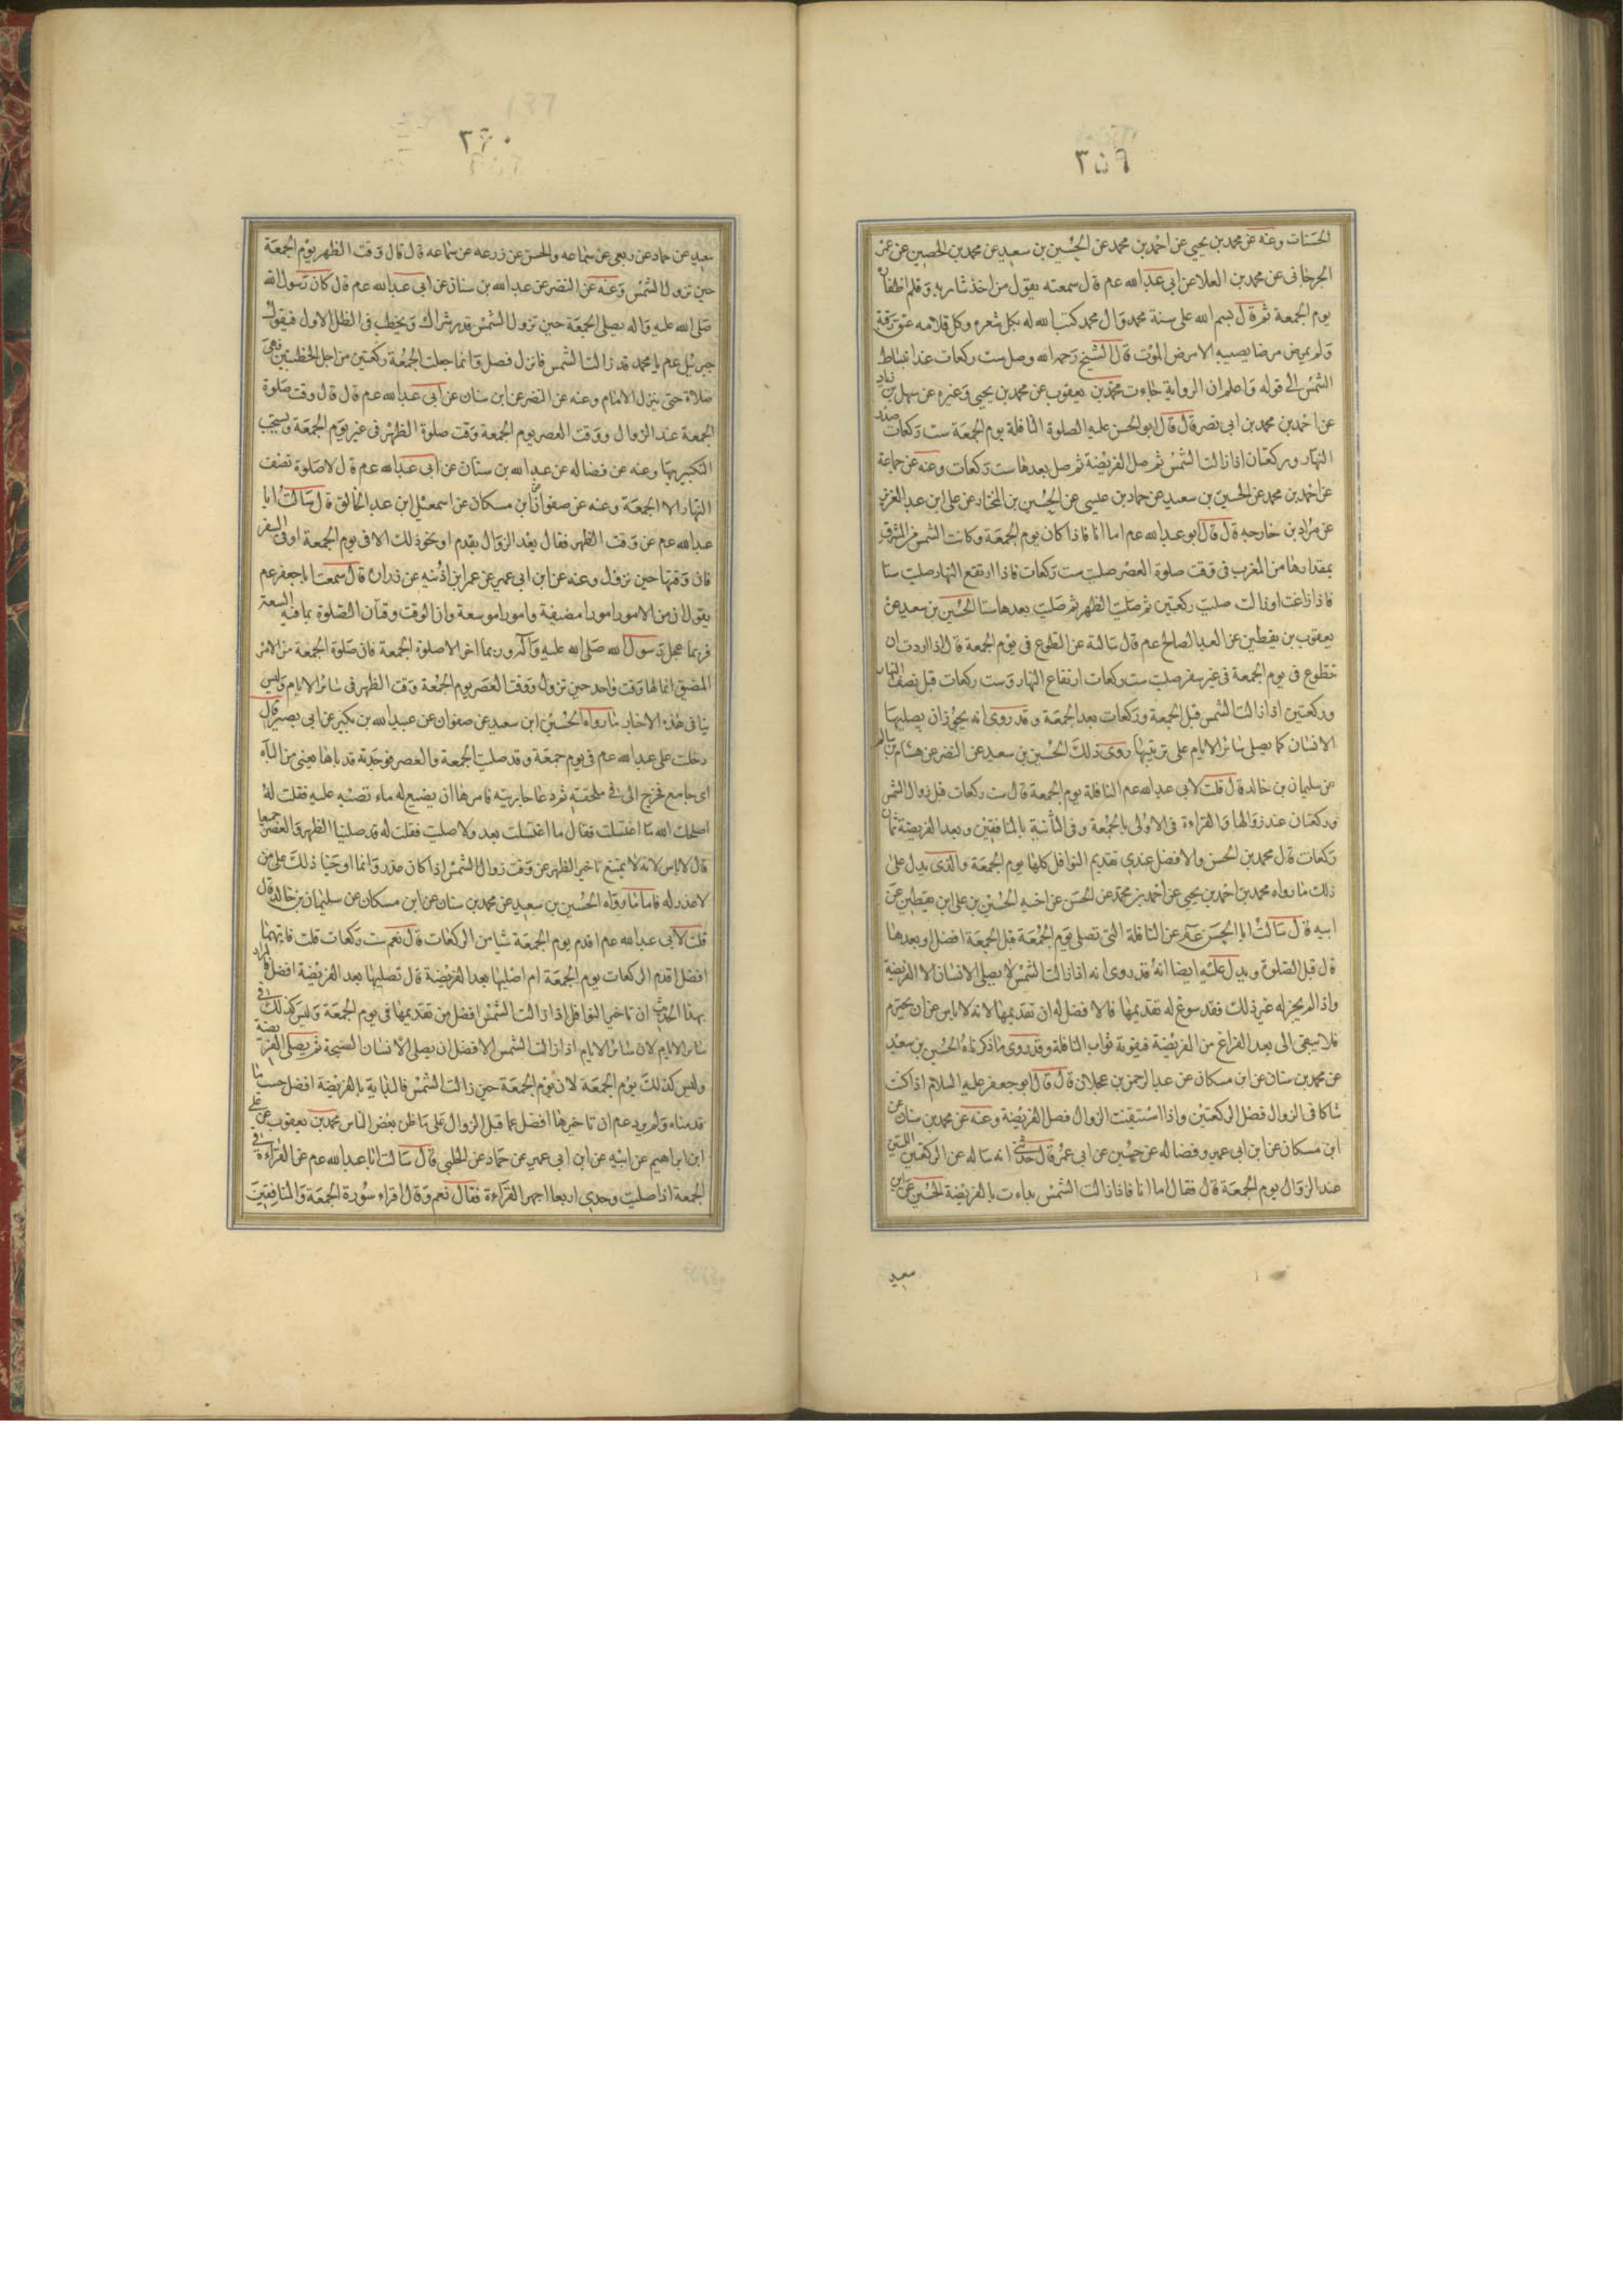 ٣٥٩
الحسنات وعنه عن محمد بن يحيى عن احمد بن محمد عن الحسين بن سعيد عن محمد بن الحصين عن عمر
الجرجانى عن محمد بن العلا عن ابى عبدالله عم قال سمعته يقول من اخذ شاربه وقلم اظفاره
يوم الجمعة ثم قال بسم الله على سنة محمد وال محمد كتب الله له بكل شعره وكل قلامه عتق رقبة
ولم يمرض مرضا يصيبه الا مرض الموت قال الشيخ رحمه الله وصل ست ركعات عند انبساط
الشمس الى قوله واعلم ان الرواية جاءت محمد بن يعقوب عن محمد بن يحيى وغيره عن سهل بن زياد
عن احمد بن محمد بن ابى نصر قال قال ابو الحسن عليه الصلوة النافلة يوم الجمعة ست ركعات صدر
النهار وركعتان اذا زالت الشمس ثم صل الفريضة ثم صل بعدها ست ركعات وعنه عن جماعة
عن احمد بن محمد عن الحسين بن سعيد عن حماد بن عيسى عن الحسين بن المختار عن على ابن عبد العزيز
عن مراد بن خارجه قال قال ابو عبدالله عم اما انا فاذا كان يوم الجمعة وكانت الشمس من المشرق
بمقدارها من المغرب فى وقت صلوة العصر صليت ست ركعات فاذا ارتفع النهار صليت ستا
فاذا زاغت او زالت صليت ركعتين ثم صليت الظهر ثم صليت بعدها ستا الحسين بن سعيد عن
يعقوب بن يقطين عن العبد الصالح عم قال سالته عن التطوع فى يوم الجمعة قال اذا اردت ان
تتطوع فى يوم الجمعة فى غير سفر صليت ست ركعات ارتفاع النهار وست ركعات قبل نصف النهار
وركعتين اذا زالت الشمس قبل الجمعة وركعات بعد الجمعة وقد روى انه يجوز ان يصليها
الانسان كما يصلى سائر الايام على ترتيبها روى ذلك الحسين بن سعيد عن النضر عن هشام بن سالم
عن سليمان بن خالد قال قلت لابى عبدالله عم النافلة يوم الجمعة قال ست ركعات قبل زوال الشمس
وركعتان عند زوالها والقراءة فى الاولى بالجمعة وفى الثانية بالمنافقين وبعد الفريضة ثمان
ركعات قال محمد بن الحسن والافضل عندى تقديم النوافل كلها يوم الجمعة والذى يدل على
ذلك ما رواه محمد بن احمد بن يحيى عن احمد بن محمد عن الحسن عن اخيه الحسين بن على ابن يقطين عن
ابيه قال سالت ابا الحسن عم عن النافلة التى تصلى يوم الجمعة قبل الجمعة افضل او بعدها
قال قبل الصلوة ويدل عليه ايضا انه قد روى انه اذا زالت الشمس لا يصلى الانسان الا الفريضة
واذا لم يجز له غير ذلك فقد سوغ له تقديمها فالافضل له ان تقديمها لانه لا يامن عن ان يحترم
فلا يبقى الى بعد الفراغ من الفريضة فيفوته ثواب النافلة وقد روى ما ذكرناه الحسين بن سعيد
عن محمد بن سنان عن ابن مسكان عن عبد الرحمن بن عجلان قال قال ابو جعفر عليه السلام اذا كنت
شاكا فى الزوال فصل الركعتين واذا استيقنت الزوال فصل الفريضة وعنه عن محمد بن سنان عن
ابن مسكان عن ابن ابى عمير وفضاله عن حسين عن ابى عمر قال حدثنى انه ساله عن الركعتين اللتين
عند الزوال يوم الجمعة قال فقال اما انا فاذا زالت الشمس بداءت بالفريضة الحسين عن ابن
سعيد
٣٦٠
سعيد عن حماد عن ربعى عن سماعه والحسن عن زرعه عن سماعه قال قال وقت الظهر يوم الجمعة
حين تزول الشمس وعنه عن النضر عن عبدالله بن سنان عن ابى عبدالله عم قال كان رسول الله
صلى الله عليه واله يصلى الجمعة حين تزول الشمس قدر شراك ويخطب فى الظل الاول فيقول
جبرئيل عم يا محمد قد زالت الشمس فانزل فصل وانما جعلت الجمعة ركعتين من اجل الخطبتين فهى
صلاة حتى ينزل الامام وعنه عن النضر عن ابن سنان عن ابى عبدالله عم قال قال وقت صلوة
الجمعة عند الزوال ووقت العصر يوم الجمعة وقت صلوة الظهر فى غير يوم الجمعة ويستحب
التكبير بها وعنه عن فضاله عن عبدالله بن سنان عن ابى عبدالله عم قال لا صلوة نصف
النهار الا الجمعة وعنه عن صفوان عن ابن مسكان عن اسمعيل ابن عبد الخالق قال سالت ابا
عبدالله عم عن وقت الظهر فقال بعد الزوال بقدم او نحو ذلك الا فى يوم الجمعة او فى السفر
فان وقتها حين تزول وعنه عن ابن ابى عمير عن عمر ابن اذينه عن زرارة قال سمعت ابا جعفر عم
يقول ان من الامور امورا مضيقة وامورا موسعة وان الوقت وقتان الصلوة بما فيه السعة
فربما عجل رسول الله صلى الله عليه واله وربما اخر الا صلوة الجمعة فان صلوة الجمعة من الامر
المضيق انما لها وقت واحد حين تزول ووقت العصر يوم الجمعة وقت الظهر فى سائر الايام وليس
ينافى هذه الاخبار ما رواه الحسين ابن سعيد عن صفوان عن عبيدالله بن بكير عن ابى بصير قال
دخلت على عبدالله عم فى يوم جمعة وقد صليت الجمعة والعصر فوجدته قد باها يعنى من الباه
اى جامع فخرج الى فى ملحفته ثم دعا جاريته فامرها ان يضيع له ماء تصبه عليه فقلت له
اصلحك الله ما اغتسلت فقال ما اغتسلت بعد ولا صليت فقلت له قد صلينا الظهر والعصر جميعا
قال لا باس لانه لا يمتنع تاخير الظهر عن وقت زوال الشمس اذا كان عذر وانما اوجبنا ذلك على من
لا عذر له فاما ما رواه الحسين بن سعيد عن محمد بن سنان عن ابن مسكان عن سليمان بن خالد قال
قلت لابى عبدالله عم اقدم يوم الجمعة شيا من الركعات قال نعم ست ركعات قلت فايتهما
افضل اقدم الركعات يوم الجمعة ام اصليها بعد الفريضة قال تصليها بعد الفريضة افضل فالمراد
بهذا الحديث ان تاخير النوافل اذا زالت الشمس افضل من تقديمها فى يوم الجمعة وليس كذلك فى
سائر الايام لان سائر الايام اذا زالت الشمس الافضل ان يصلى الانسان السبحة ثم يصلى الفريضة
وليس كذلك يوم الجمعة لان يوم الجمعة حين زالت الشمس فالبداية بالفريضة افضل حسب ما
قدمناه ولم يرد عم ان تاخيرها افضل عما قبل الزوال على ما ظن بعض الناس محمد بن يعقوب عن على
ابن ابراهيم عن ابيه عن ابن ابى عمير عن حماد عن الحلبى قال سالت ابا عبدالله عم عن القراءة فى
الجمعة اذا صليت وحدى اربعا اجهر القراءة فقال نعم وقال اقراء سورة الجمعة والمنافقين